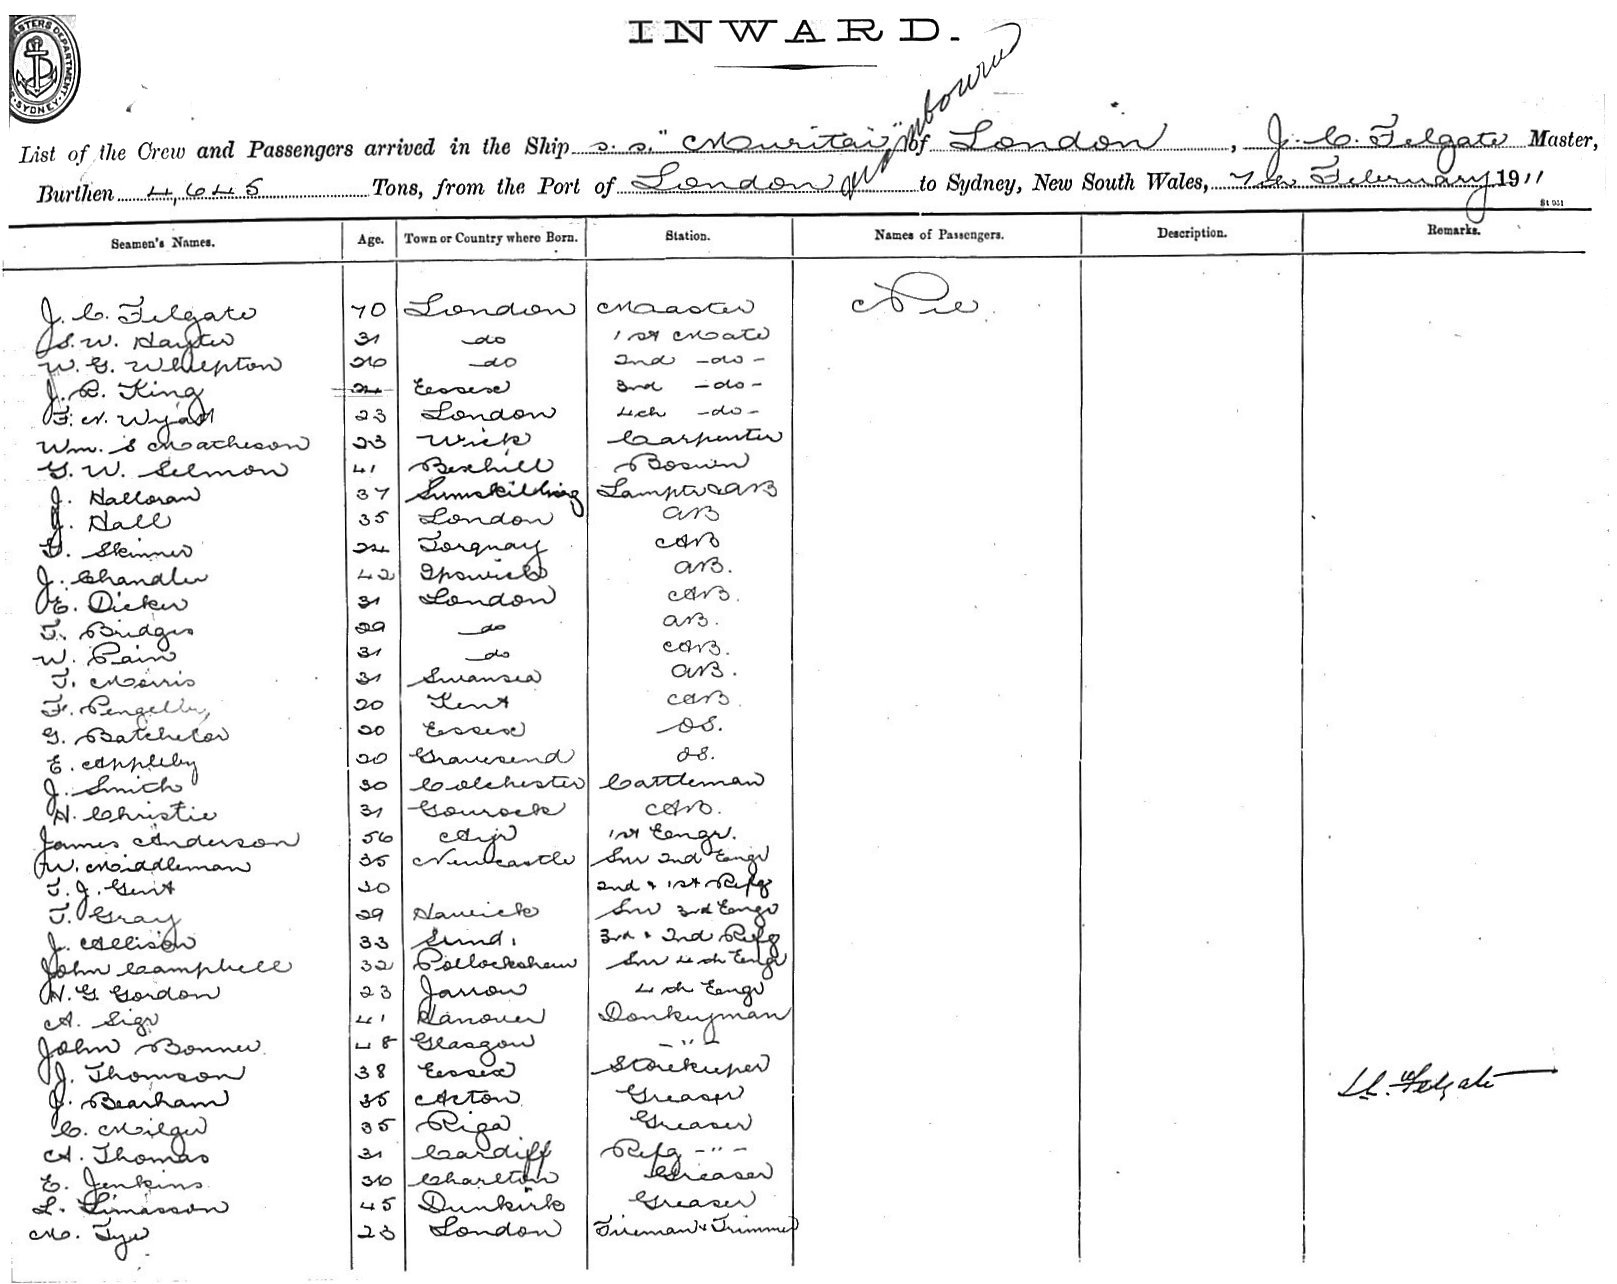 MASTERS DEPARTMENT SYDNEY
INWARD.
List of the Crew and Passengers arrived in the Ship s.s. "Muritai" of London, J. C. Felgate Master,
Burthen 4,645 Tons, from the Port of London to Sydney, New South Wales, 7th February 1911
Seamen's Names. Age. Town or Country where Born. Station. Names of Passengers. Description. Remarks.
J. C. Felgate 70 London Master Nil
S. W. Hayter 31 do 1st Mate
W. G. Whlepton 26 do 2nd -do-
J. R. King 24 Essex 3rd -do-
F. N. Wyatt 23 London 4th -do-
Wm. S Matheson 23 Wick Carpenter
G. W. Selmon 41 Bexhill Boswn
J. Halloran 37 Lampter & AB
J. Hall 35 London AB
Skinner 24 Torquay AB
J. Chandler 42 Ipswich AB.
E. Dicker 31 London AB.
F. Bridges 29 do AB.
W. Pain 31 do AB.
T. Morris 31 Swansea AB.
F. Pengelly 20 Kent AB
G. Batchelor 20 Essex OS.
E. Appleby 20 Gravesend OS.
J. Smith 30 Colchester Cattleman
H. Christie 31 Gourock AB.
James Anderson 56 Ayr 1st Eengr.
W. Middleman 35 Newcastle Snr 2nd Eengr
T. J. Gent 30 2nd & 1st Refg
T. Gray 29 Hawick Snr 3rd Eengr
J. Allison 33 Sund. 3rd & 2nd Refg
John Campbell 32 Pollockshaw Snr 4th Eengr
H. G. Gordon 23 Jarrow 4th Eengr
A. 41 Hanover Donkeyman
John Bonner 48 Glasgow - " -
J. Thomson 38 Essex Storekeeper
J. Bearham 35 Acton Greaser
C. Milger 35 Riga Greaser
A. Thomas 31 Cardiff Refg - " -
E. Jenkins 30 Charlton Greaser
L. Limasson 45 Dunkirk Greaser
M. Tye 23 London Fireman & Trimmer
Felgate